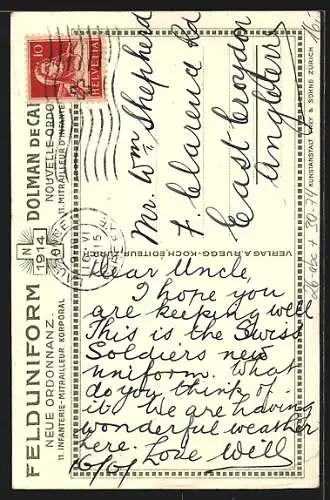 FELDUNIFORM
NEUE ORDONNANZ.
11. INFANTERIE-MITRAILLEUR KORPORAL
1914
DOLMAN DE CA
NOUVELLE ORDO
11. MITRAILLEUR D'INFANTE
10
HELVETIA
VERLAG A. RUEGG-KOCH, EDITEUR, ZURICH
KUNSTANSTALT FREY & SÖHNE ZÜRICH
Mr. Wm Shepherd
7. Clarend Rd
East Croydon
Dear Uncle,
I hope you
are keeping well
This is the Swiss
Soldiers new
uniform. What
do you think of
it. We are having
wonderful weather
here. Love Will